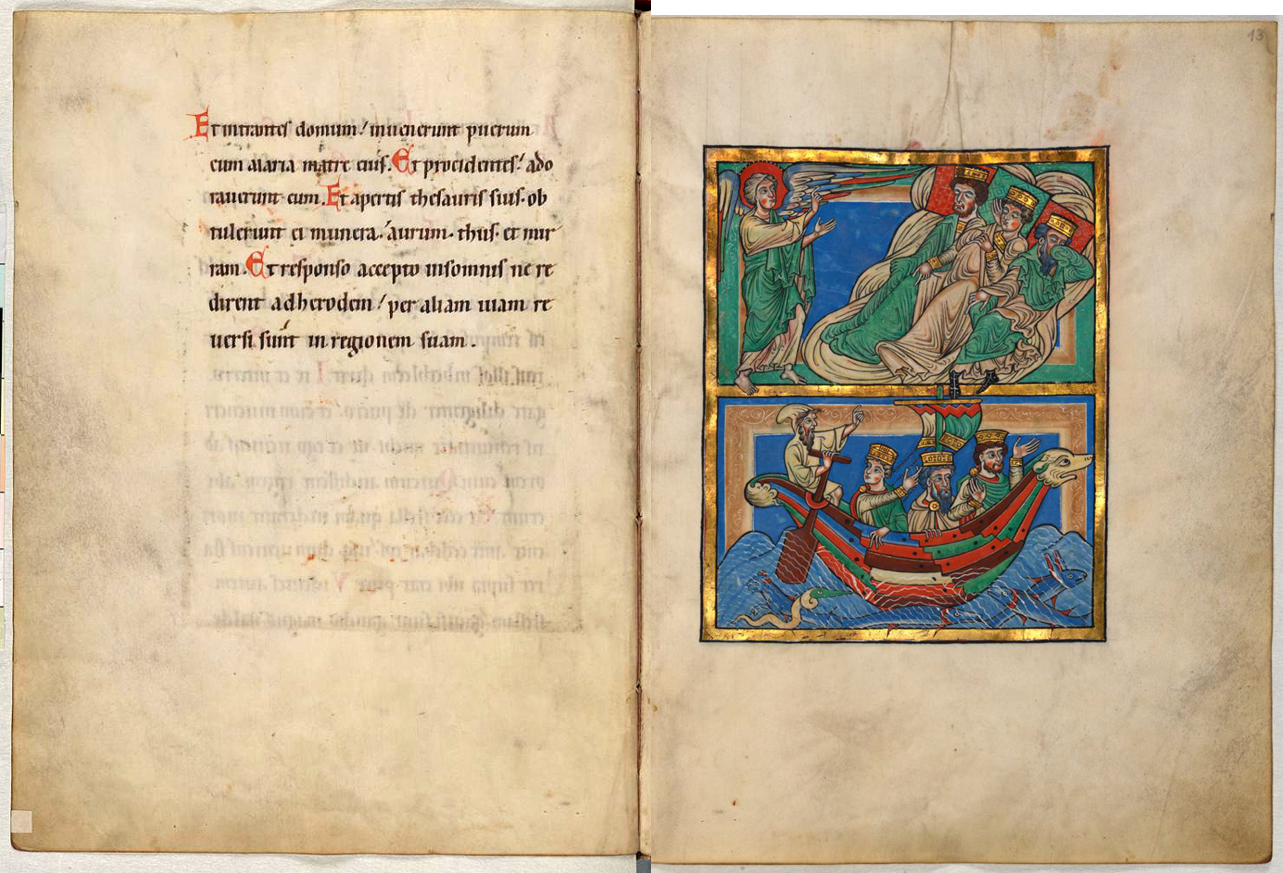 Et intrantes domum / inuenerunt puerum
cum maria matre eius. Et procidentes / ado
rauerunt eum. Et apertis thesauris suis. ob
tulerunt ei munera. aurum. thus. et mir
ram. Et responso accepto insomnis ne re
dirent ad herodem / per aliam uiam re
uersi sunt in regionem suam.
13